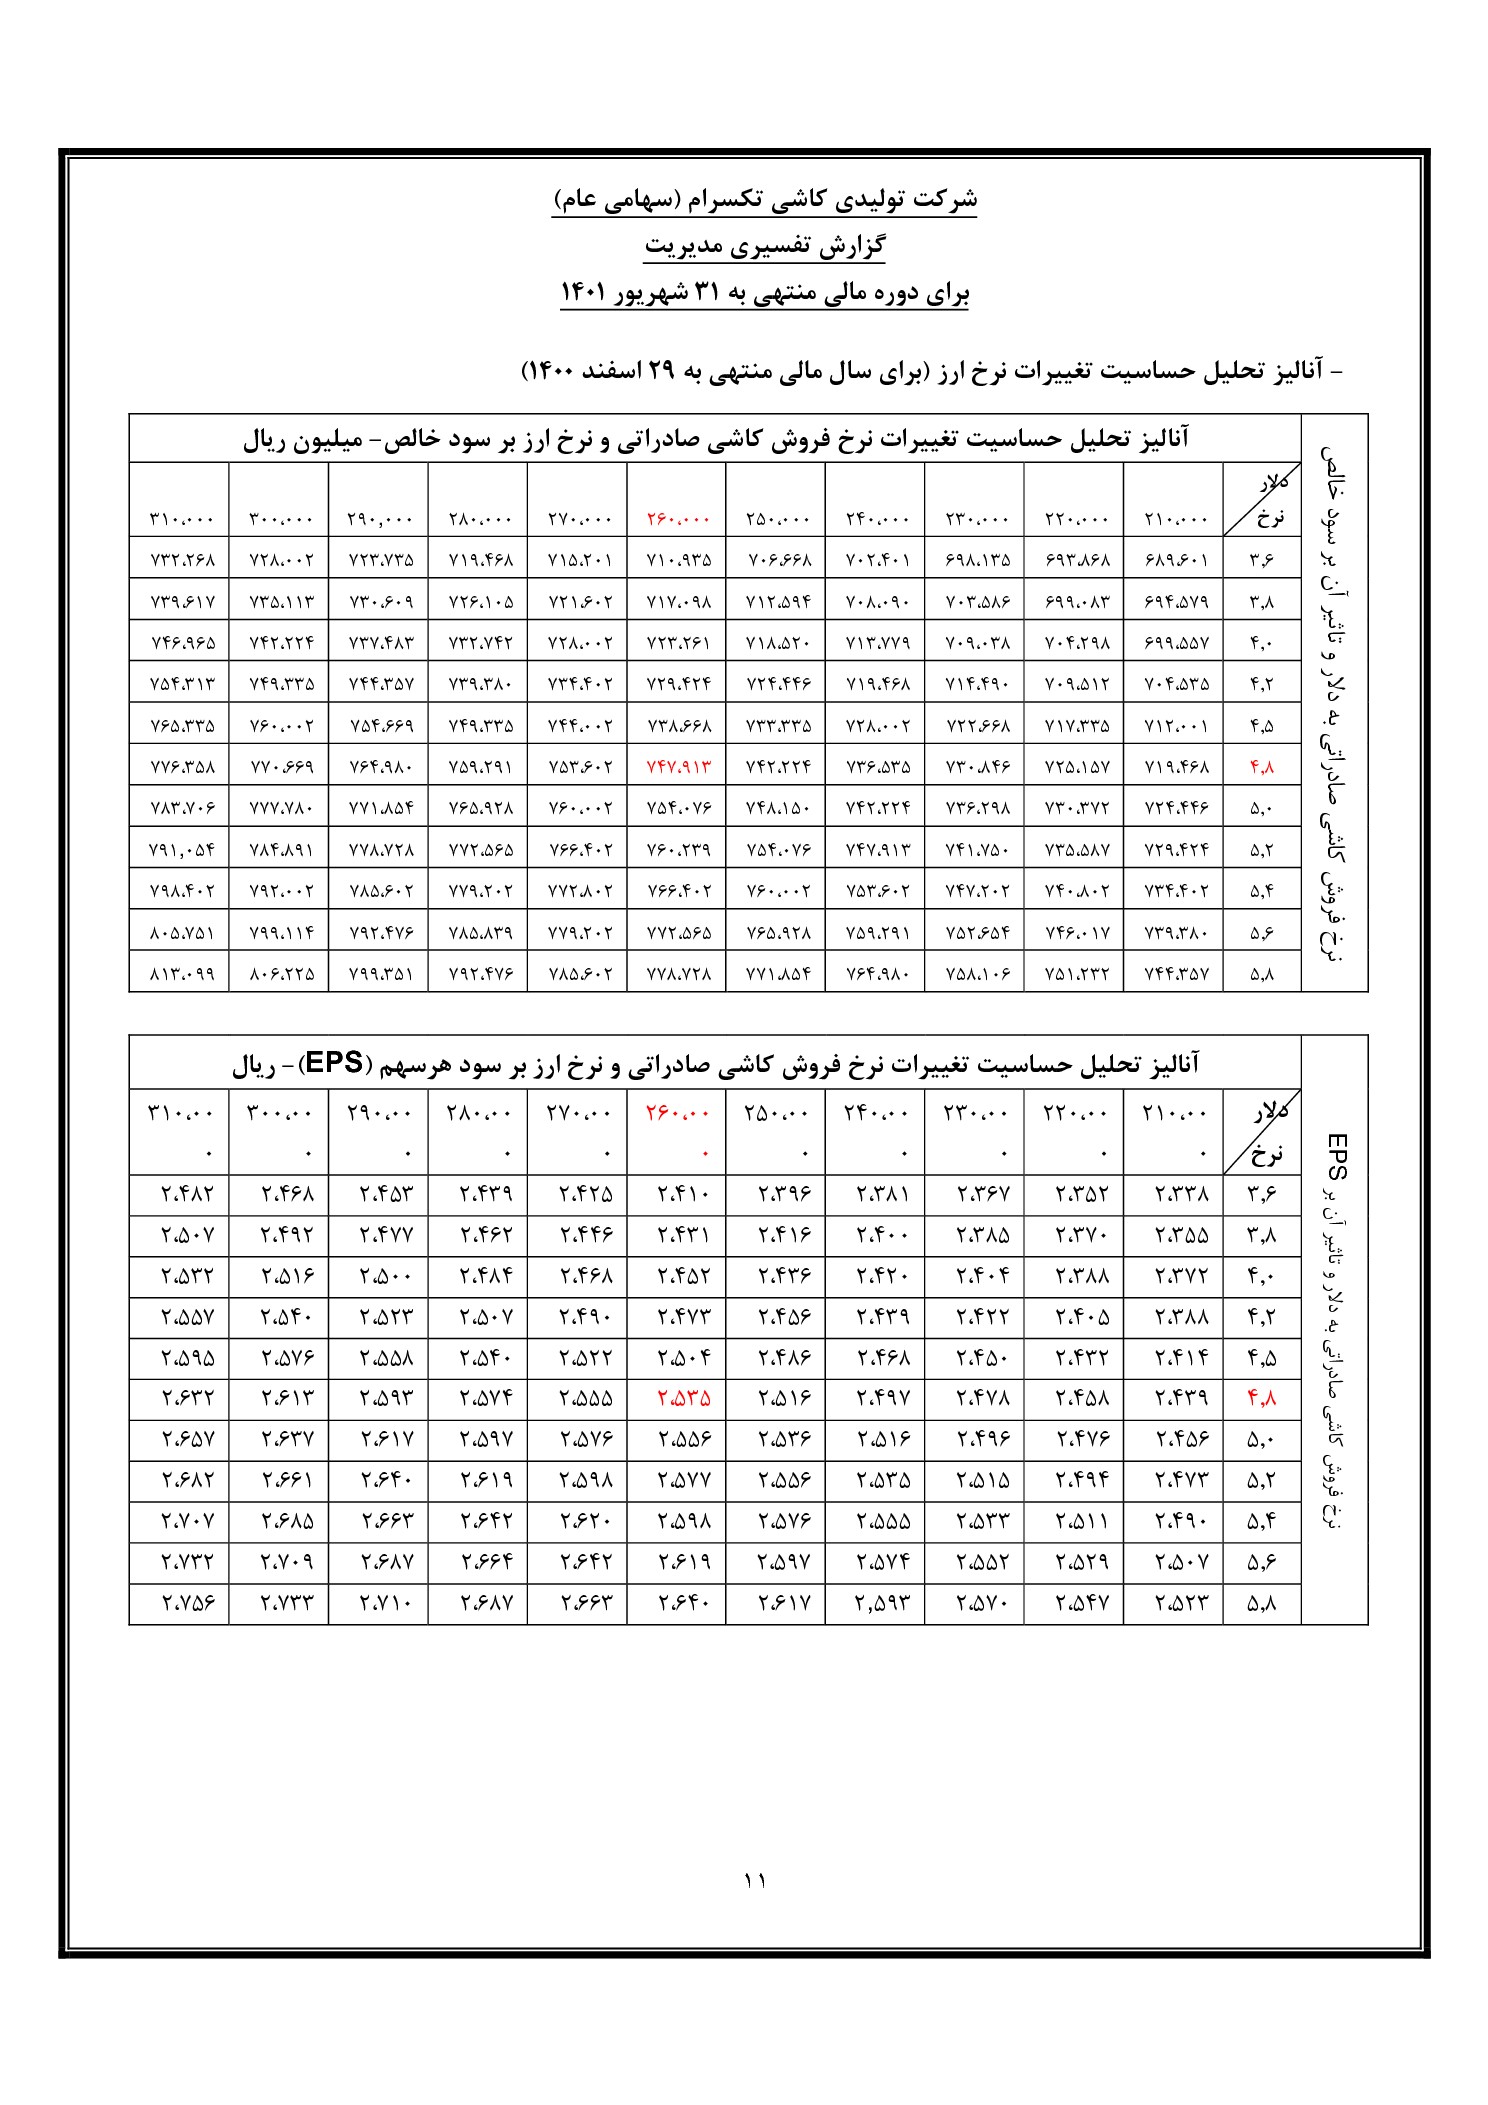 شرکت تولیدی کاشی تکسرام (سهامی عام)
گزارش تفسیری مدیریت
برای دوره مالی منتهی به ۳۱ شهریور ۱۴۰۱
- آنالیز تحلیل حساسیت تغییرات نرخ ارز (برای سال مالی منتهی به ۲۹ اسفند ۱۴۰۰)
نرخ فروش کاشی صادراتی به دلار و تاثیر آن بر سود خالص
آنالیز تحلیل حساسیت تغییرات نرخ فروش کاشی صادراتی و نرخ ارز بر سود خالص- میلیون ریال
دلار
نرخ ۲۱۰،۰۰۰ ۲۲۰،۰۰۰ ۲۳۰،۰۰۰ ۲۴۰،۰۰۰ ۲۵۰،۰۰۰ ۲۶۰،۰۰۰ ۲۷۰،۰۰۰ ۲۸۰،۰۰۰ ۲۹۰,۰۰۰ ۳۰۰،۰۰۰ ۳۱۰،۰۰۰
۳,۶ ۶۸۹،۶۰۱ ۶۹۳،۸۶۸ ۶۹۸،۱۳۵ ۷۰۲،۴۰۱ ۷۰۶،۶۶۸ ۷۱۰،۹۳۵ ۷۱۵،۲۰۱ ۷۱۹،۴۶۸ ۷۲۳،۷۳۵ ۷۲۸،۰۰۲ ۷۳۲،۲۶۸
۳,۸ ۶۹۴،۵۷۹ ۶۹۹،۰۸۳ ۷۰۳،۵۸۶ ۷۰۸،۰۹۰ ۷۱۲،۵۹۴ ۷۱۷،۰۹۸ ۷۲۱،۶۰۲ ۷۲۶،۱۰۵ ۷۳۰،۶۰۹ ۷۳۵،۱۱۳ ۷۳۹،۶۱۷
۴,۰ ۶۹۹،۵۵۷ ۷۰۴،۲۹۸ ۷۰۹،۰۳۸ ۷۱۳،۷۷۹ ۷۱۸،۵۲۰ ۷۲۳،۲۶۱ ۷۲۸،۰۰۲ ۷۳۲،۷۴۲ ۷۳۷،۴۸۳ ۷۴۲،۲۲۴ ۷۴۶،۹۶۵
۴,۲ ۷۰۴،۵۳۵ ۷۰۹،۵۱۲ ۷۱۴،۴۹۰ ۷۱۹،۴۶۸ ۷۲۴،۴۴۶ ۷۲۹،۴۲۴ ۷۳۴،۴۰۲ ۷۳۹،۳۸۰ ۷۴۴،۳۵۷ ۷۴۹،۳۳۵ ۷۵۴،۳۱۳
۴,۵ ۷۱۲،۰۰۱ ۷۱۷،۳۳۵ ۷۲۲،۶۶۸ ۷۲۸،۰۰۲ ۷۳۳،۳۳۵ ۷۳۸،۶۶۸ ۷۴۴،۰۰۲ ۷۴۹،۳۳۵ ۷۵۴،۶۶۹ ۷۶۰،۰۰۲ ۷۶۵،۳۳۵
۴,۸ ۷۱۹،۴۶۸ ۷۲۵،۱۵۷ ۷۳۰،۸۴۶ ۷۳۶،۵۳۵ ۷۴۲،۲۲۴ ۷۴۷،۹۱۳ ۷۵۳،۶۰۲ ۷۵۹،۲۹۱ ۷۶۴،۹۸۰ ۷۷۰،۶۶۹ ۷۷۶،۳۵۸
۵,۰ ۷۲۴،۴۴۶ ۷۳۰،۳۷۲ ۷۳۶،۲۹۸ ۷۴۲،۲۲۴ ۷۴۸،۱۵۰ ۷۵۴،۰۷۶ ۷۶۰،۰۰۲ ۷۶۵،۹۲۸ ۷۷۱،۸۵۴ ۷۷۷،۷۸۰ ۷۸۳،۷۰۶
۵,۲ ۷۲۹،۴۲۴ ۷۳۵،۵۸۷ ۷۴۱،۷۵۰ ۷۴۷،۹۱۳ ۷۵۴،۰۷۶ ۷۶۰،۲۳۹ ۷۶۶،۴۰۲ ۷۷۲،۵۶۵ ۷۷۸،۷۲۸ ۷۸۴،۸۹۱ ۷۹۱,۰۵۴
۵,۴ ۷۳۴،۴۰۲ ۷۴۰،۸۰۲ ۷۴۷،۲۰۲ ۷۵۳،۶۰۲ ۷۶۰،۰۰۲ ۷۶۶،۴۰۲ ۷۷۲،۸۰۲ ۷۷۹،۲۰۲ ۷۸۵،۶۰۲ ۷۹۲،۰۰۲ ۷۹۸،۴۰۲
۵,۶ ۷۳۹،۳۸۰ ۷۴۶،۰۱۷ ۷۵۲،۶۵۴ ۷۵۹،۲۹۱ ۷۶۵،۹۲۸ ۷۷۲،۵۶۵ ۷۷۹،۲۰۲ ۷۸۵،۸۳۹ ۷۹۲،۴۷۶ ۷۹۹،۱۱۴ ۸۰۵،۷۵۱
۵,۸ ۷۴۴،۳۵۷ ۷۵۱،۲۳۲ ۷۵۸،۱۰۶ ۷۶۴،۹۸۰ ۷۷۱،۸۵۴ ۷۷۸،۷۲۸ ۷۸۵،۶۰۲ ۷۹۲،۴۷۶ ۷۹۹،۳۵۱ ۸۰۶،۲۲۵ ۸۱۳،۰۹۹
نرخ فروش کاشی صادراتی به دلار و تاثیر آن بر EPS
آنالیز تحلیل حساسیت تغییرات نرخ فروش کاشی صادراتی و نرخ ارز بر سود هرسهم (EPS)- ریال
دلار ۲۱۰،۰۰ ۲۲۰،۰۰ ۲۳۰،۰۰ ۲۴۰،۰۰ ۲۵۰،۰۰ ۲۶۰،۰۰ ۲۷۰،۰۰ ۲۸۰،۰۰ ۲۹۰،۰۰ ۳۰۰،۰۰ ۳۱۰،۰۰
نرخ ۰ ۰ ۰ ۰ ۰ ۰ ۰ ۰ ۰ ۰ ۰
۳,۶ ۲،۳۳۸ ۲،۳۵۲ ۲،۳۶۷ ۲،۳۸۱ ۲،۳۹۶ ۲،۴۱۰ ۲،۴۲۵ ۲،۴۳۹ ۲،۴۵۳ ۲،۴۶۸ ۲،۴۸۲
۳,۸ ۲،۳۵۵ ۲،۳۷۰ ۲،۳۸۵ ۲،۴۰۰ ۲،۴۱۶ ۲،۴۳۱ ۲،۴۴۶ ۲،۴۶۲ ۲،۴۷۷ ۲،۴۹۲ ۲،۵۰۷
۴,۰ ۲،۳۷۲ ۲،۳۸۸ ۲،۴۰۴ ۲،۴۲۰ ۲،۴۳۶ ۲،۴۵۲ ۲،۴۶۸ ۲،۴۸۴ ۲،۵۰۰ ۲،۵۱۶ ۲،۵۳۲
۴,۲ ۲،۳۸۸ ۲،۴۰۵ ۲،۴۲۲ ۲،۴۳۹ ۲،۴۵۶ ۲،۴۷۳ ۲،۴۹۰ ۲،۵۰۷ ۲،۵۲۳ ۲،۵۴۰ ۲،۵۵۷
۴,۵ ۲،۴۱۴ ۲،۴۳۲ ۲،۴۵۰ ۲،۴۶۸ ۲،۴۸۶ ۲،۵۰۴ ۲،۵۲۲ ۲،۵۴۰ ۲،۵۵۸ ۲،۵۷۶ ۲،۵۹۵
۴,۸ ۲،۴۳۹ ۲،۴۵۸ ۲،۴۷۸ ۲،۴۹۷ ۲،۵۱۶ ۲،۵۳۵ ۲،۵۵۵ ۲،۵۷۴ ۲،۵۹۳ ۲،۶۱۳ ۲،۶۳۲
۵,۰ ۲،۴۵۶ ۲،۴۷۶ ۲،۴۹۶ ۲،۵۱۶ ۲،۵۳۶ ۲،۵۵۶ ۲،۵۷۶ ۲،۵۹۷ ۲،۶۱۷ ۲،۶۳۷ ۲،۶۵۷
۵,۲ ۲،۴۷۳ ۲،۴۹۴ ۲،۵۱۵ ۲،۵۳۵ ۲،۵۵۶ ۲،۵۷۷ ۲،۵۹۸ ۲،۶۱۹ ۲،۶۴۰ ۲،۶۶۱ ۲،۶۸۲
۵,۴ ۲،۴۹۰ ۲،۵۱۱ ۲،۵۳۳ ۲،۵۵۵ ۲،۵۷۶ ۲،۵۹۸ ۲،۶۲۰ ۲،۶۴۲ ۲،۶۶۳ ۲،۶۸۵ ۲،۷۰۷
۵,۶ ۲،۵۰۷ ۲،۵۲۹ ۲،۵۵۲ ۲،۵۷۴ ۲،۵۹۷ ۲،۶۱۹ ۲،۶۴۲ ۲،۶۶۴ ۲،۶۸۷ ۲،۷۰۹ ۲،۷۳۲
۵,۸ ۲،۵۲۳ ۲،۵۴۷ ۲،۵۷۰ ۲,۵۹۳ ۲،۶۱۷ ۲،۶۴۰ ۲،۶۶۳ ۲،۶۸۷ ۲،۷۱۰ ۲،۷۳۳ ۲،۷۵۶
۱۱